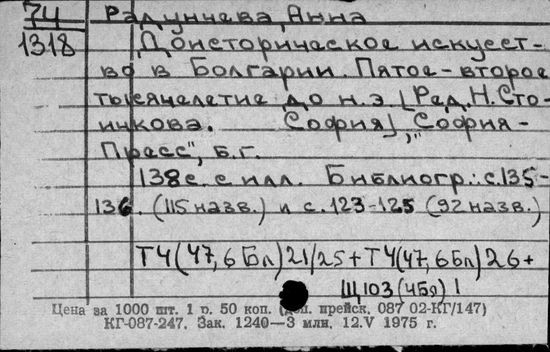 74
1318
Радунчева, Анна
Доисторическое искусст-
во в Болгарии. Пятое-второе
тысячелетие до н.э. [Ред. Н. Сто-
ичкова. София], "София-
Пресс", б.г.
138с. с илл. Библиогр.: с.135-
136. (115 назв.) и с.123-125 (92 назв.)
Т4(47,6Бл)21/25+Т4(47,6Бл)26+
Щ103(4Бл)1
Цена за 1000 шт. 1 р. 50 коп. прейск. 087 02-КГ/147)
КГ-087-247. Зак. 1240—3 млн. 12.V 1975 г.